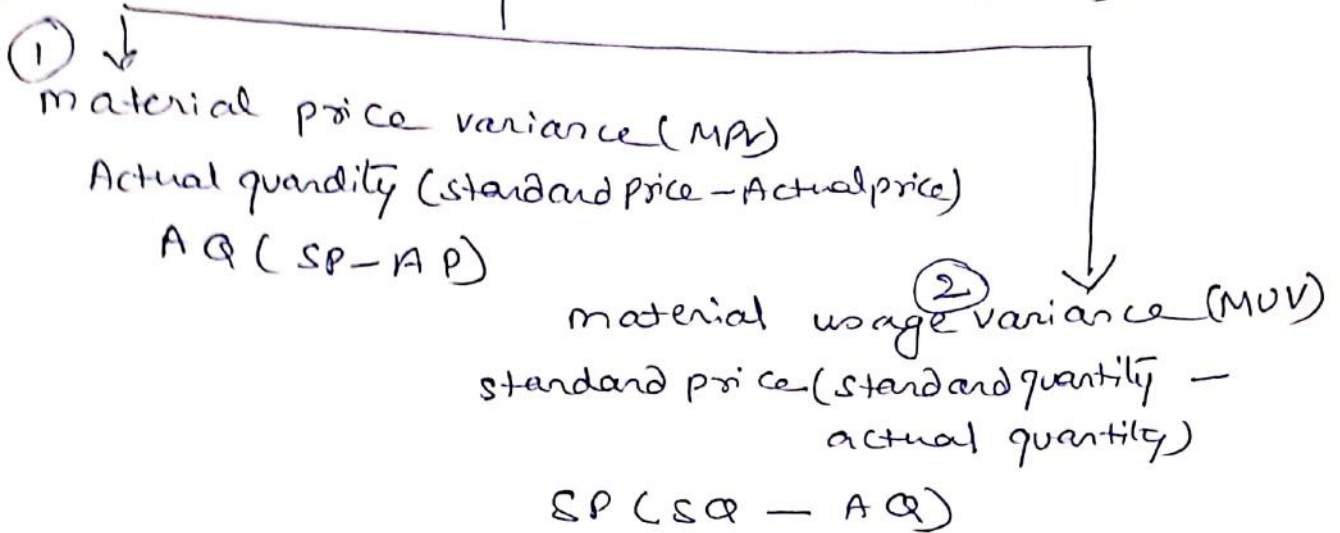 1
material price variance (MPV)
Actual quandity (standard price - Actual price)
AQ (SP - AP)
2
material usage variance (MUV)
standard price (standard quantity -
actual quantity)
SP (SQ - AQ)